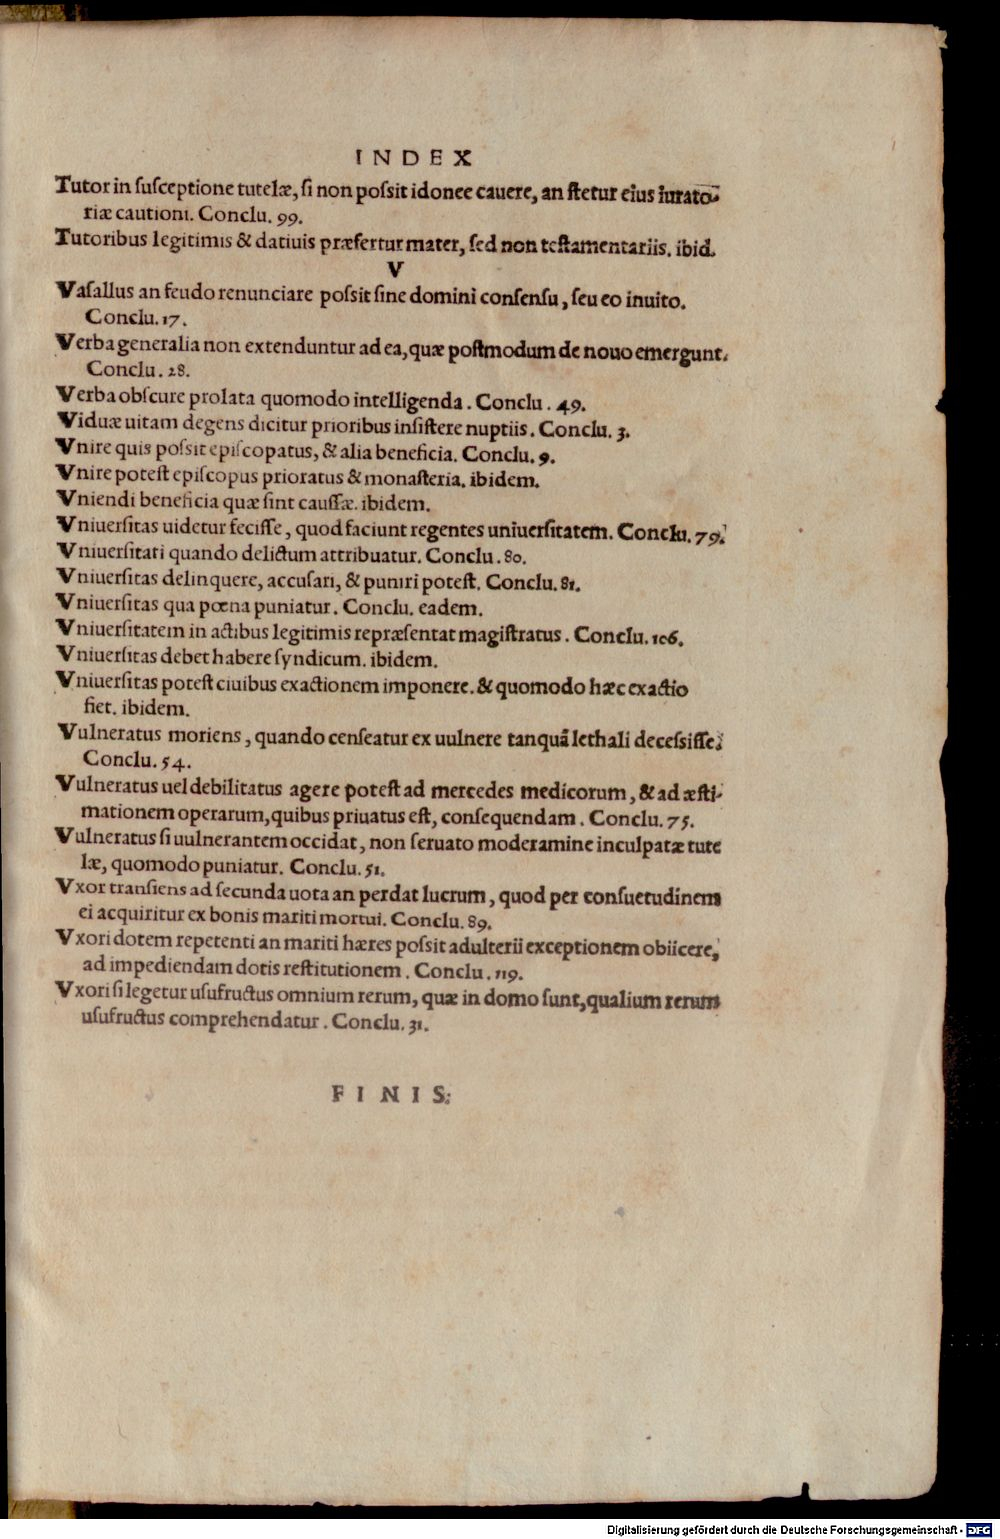 INDEX
Tutor in susceptione tutelæ, si non possit idonee cauere, an stetur eius iurato-
riæ cautioni. Conclu. 99.
Tutoribus legitimis & datiuis præfertur mater, sed non testamentariis. ibid.
V
Vasallus an feudo renunciare possit sine domini consensu, seu eo inuito.
Conclu. 17.
Verba generalia non extenduntur ad ea, quæ postmodum de nouo emergunt.
Conclu. 28.
Verba obscure prolata quomodo intelligenda. Conclu. 49.
Viduæ uitam degens dicitur prioribus insistere nuptiis. Conclu. 3.
Vnire quis possit episcopatus, & alia beneficia. Conclu. 9.
Vnire potest episcopus prioratus & monasteria. ibidem.
Vniendi beneficia quæ sint caussæ. ibidem.
Vniuersitas uidetur fecisse, quod faciunt regentes uniuersitatem. Conclu. 79.
Vniuersitati quando delictum attribuatur. Conclu. 80.
Vniuersitas delinquere, accusari, & puniri potest. Conclu. 81.
Vniuersitas qua pœna puniatur. Conclu. eadem.
Vniuersitatem in actibus legitimis repræsentat magistratus. Conclu. 106.
Vniuersitas debet habere syndicum. ibidem.
Vniuersitas potest ciuibus exactionem imponere. & quomodo hæc exactio
fiet. ibidem.
Vulneratus moriens, quando censeatur ex uulnere tanquã lethali decessisse.
Conclu. 54.
Vulneratus uel debilitatus agere potest ad mercedes medicorum, & ad æsti-
mationem operarum, quibus priuatus est, consequendam. Conclu. 75.
Vulneratus si uulnerantem occidat, non seruato moderamine inculpatæ tute
læ, quomodo puniatur. Conclu. 51.
Vxor transiens ad secunda uota an perdat lucrum, quod per consuetudinem
ei acquiritur ex bonis mariti mortui. Conclu. 89.
Vxori dotem repetenti an mariti hæres possit adulterii exceptionem obiicere,
ad impediendam dotis restitutionem. Conclu. 119.
Vxori si legetur usufructus omnium rerum, quæ in domo sunt, qualium rerum
usufructus comprehendatur. Conclu. 31.
FINIS.
Digitalisierung gefördert durch die Deutsche Forschungsgemeinschaft - DFG